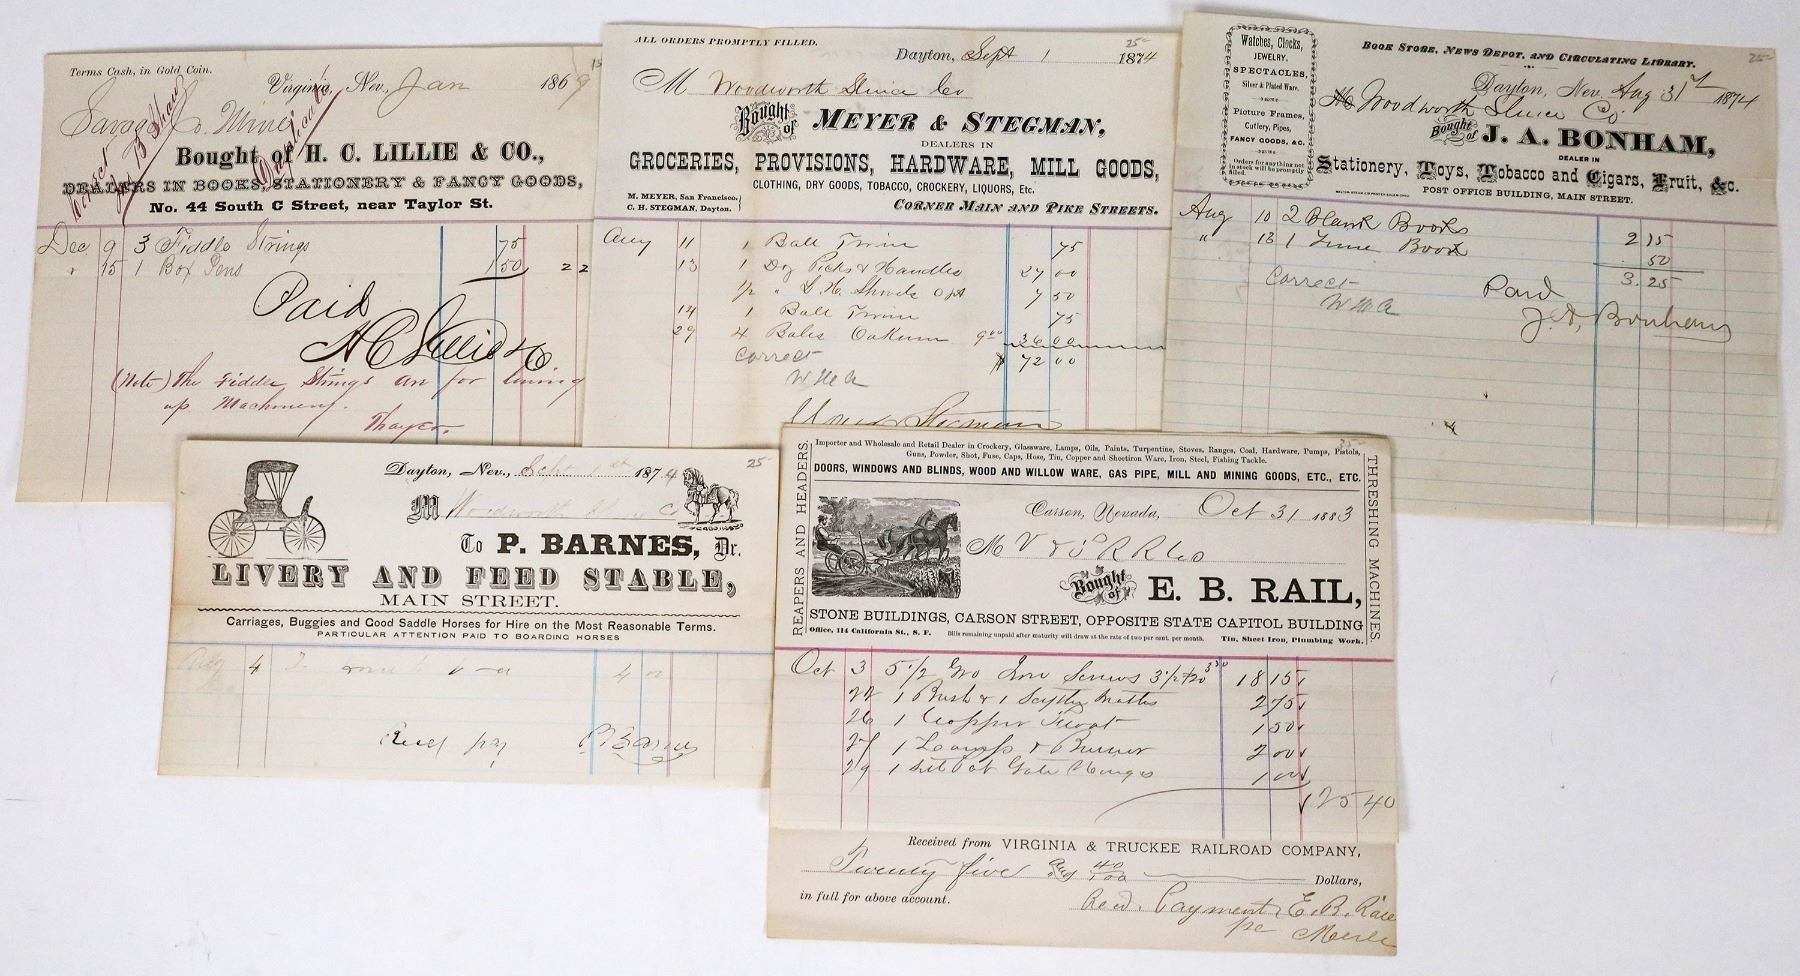 Terms Cash, in Gold Coin.
Virginia, Nev. Jan 1869
Savage Co Mine
Bought of H. C. LILLIE & CO.,
DEALERS IN BOOKS, STATIONERY & FANCY GOODS,
No. 44 South C Street, near Taylor St.
Dec 9 3 Fiddle Strings 75
" 15 1 Box Pens 1 50 2 2
Paid
H C Lillie & Co
(Note) The Fiddle Strings are for lining
up Machinery.
ALL ORDERS PROMPTLY FILLED.
25-
Dayton, Sept 1 1874
M Woodworth Sluice Co
Bought of MEYER & STEGMAN,
DEALERS IN
GROCERIES, PROVISIONS, HARDWARE, MILL GOODS,
CLOTHING, DRY GOODS, TOBACCO, CROCKERY, LIQUORS, Etc.
M. MEYER, San Francisco.
C. H. STEGMAN, Dayton.
CORNER MAIN AND PIKE STREETS.
Aug 11 1 Ball Twine 75
13 1 Doz Picks & Handles 27 00
1/2 " L H Shovels 7 50
14 1 Ball Twine 75
29 4 Bales Oakum 9 00 36 00
Correct $ 72 00
Watches, Clocks,
JEWELRY.
SPECTACLES,
Silver & Plated Ware.
Picture Frames,
Cutlery, Pipes,
FANCY GOODS, &C.
Orders for anything not
in stock will be promptly
filled.
BOOK STORE, NEWS DEPOT, AND CIRCULATING LIBRARY.
25-
Dayton, Nev. Aug 31st 1874
M Woodworth Sluice Co
Bought of J. A. BONHAM,
DEALER IN
Stationery, Toys, Tobacco and Cigars, Fruit, &c.
POST OFFICE BUILDING, MAIN STREET.
Aug 10 2 Blank Books 2 75
" 13 1 Time Book 50
3.25
Correct
Paid
J. A. Bonham
Dayton, Nev., Sept 1st 1874
25-
M Woodworth Sluice Co
To P. BARNES, Dr.
LIVERY AND FEED STABLE,
MAIN STREET.
Carriages, Buggies and Good Saddle Horses for Hire on the Most Reasonable Terms.
PARTICULAR ATTENTION PAID TO BOARDING HORSES
Aug 4 4 00
Recd pay P Barnes
Importer and Wholesale and Retail Dealer in Crockery, Glassware, Lamps, Oils, Paints, Turpentine, Stoves, Ranges, Coal, Hardware, Pumps, Pistols,
Guns, Powder, Shot, Fuse, Caps, Hose, Tin, Copper and Sheetiron Ware, Iron, Steel, Fishing Tackle.
DOORS, WINDOWS AND BLINDS, WOOD AND WILLOW WARE, GAS PIPE, MILL AND MINING GOODS, ETC., ETC.
REAPERS AND HEADERS.
THRESHING MACHINES.
Carson, Nevada, Oct 31 1883
M V & T R R Co
Bought of E. B. RAIL,
STONE BUILDINGS, CARSON STREET, OPPOSITE STATE CAPITOL BUILDING
Office, 114 California St., S. F.
Bills remaining unpaid after maturity will draw at the rate of two per cent. per month.
Tin, Sheet Iron, Plumbing Work.
Oct 3 5 1/2 Gro Iron Screws 18 15
22 1 Bush & 1 Scythe 2 75
26 1 Copper 1 50
27 1 Lamp & Burner 2 00
29 1 Gate Hinges 1 00
25 40
Received from VIRGINIA & TRUCKEE RAILROAD COMPANY,
Twenty five and 40/100 Dollars,
in full for above account.
Recd. Payment, E. B. Rail